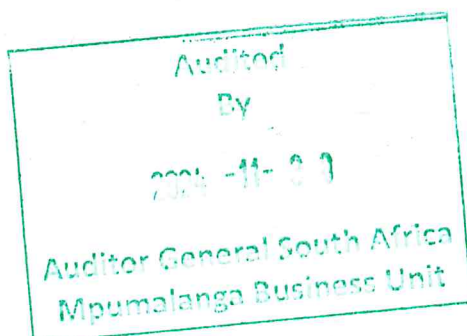 Audited
By
2024 -11-
Auditor General South Africa
Mpumalanga Business Unit